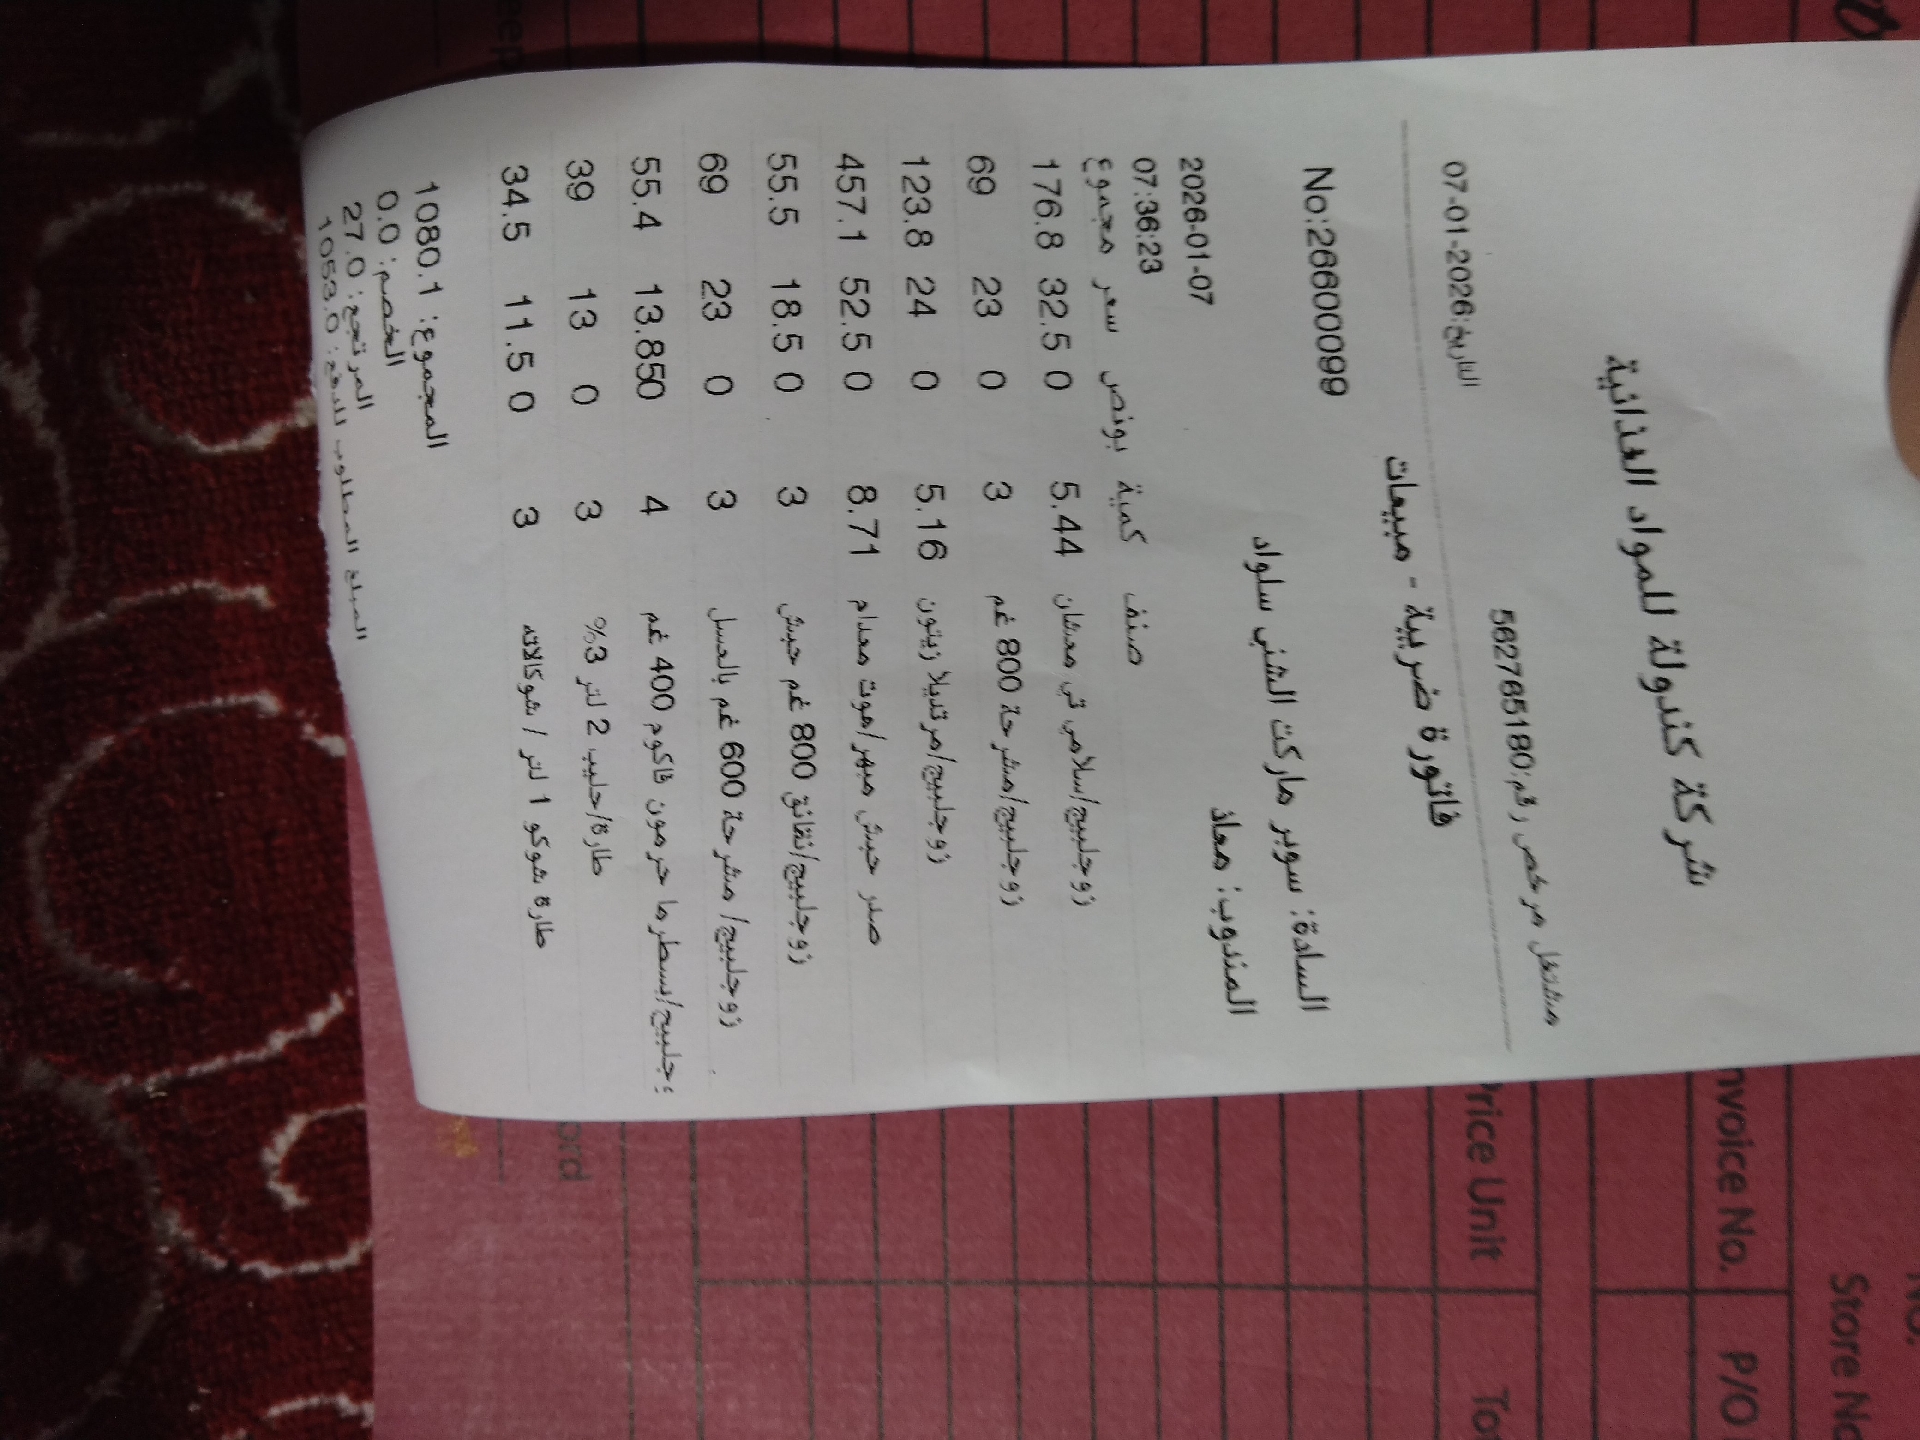 شركة كندولة للمواد الغذائية
مشتغل مرخص رقم:562765180
التاريخ:07-01-2026
فاتورة ضريبية - مبيعات
No:26600099
السادة: سوبر ماركت الشني سلواد
المندوب: معاذ
2026-01-07
07:36:23
صنف كمية بونص سعر مجموع
زوجلبيج/سلامي تي معدشان 5.44 0 32.5 176.8
زوجلبيج/مشرحة 800 غم 3 0 23 69
زوجلبيج/مرتديلا زيتون 5.16 0 24 123.8
صدر حبش مبهر/هوت مدام 8.71 0 52.5 457.1
زوجلبيج/نقانق 800 غم حبش 3 0 18.5 55.5
زوجلبيج/ مشرحة 600 غم بالعسل 3 0 23 69
جلبيج/بسطرما حرمون فاكوم 400 غم 4 13.850 55.4
طارة/حليب 2 لتر 3% 3 0 13 39
طارة شوكو 1 لتر / شوكالاته 3 0 11.5 34.5
المجموع: 1080.1
الخصم: 0.0
المرتجع: 27.0
المبلغ المطلوب للدفع: 1053.0
nvoice No.
P/O
Store No
Price Unit
No.